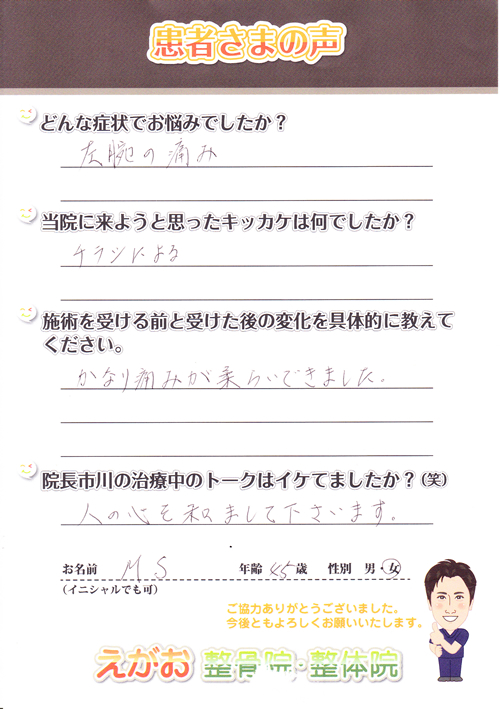 患者さまの声
どんな症状でお悩みでしたか？
左腕の痛み
当院に来ようと思ったキッカケは何でしたか？
チラシによる
施術を受ける前と受けた後の変化を具体的に教えて
ください。
かなり痛みが柔らいできました。
院長市川の治療中のトークはイケてましたか？（笑）
人の心を和まして下さいます。
お名前 M S 年齢 45歳 性別 男・女
（イニシャルでも可）
ご協力ありがとうございました。
今後ともよろしくお願いいたします。
えがお 整骨院・整体院